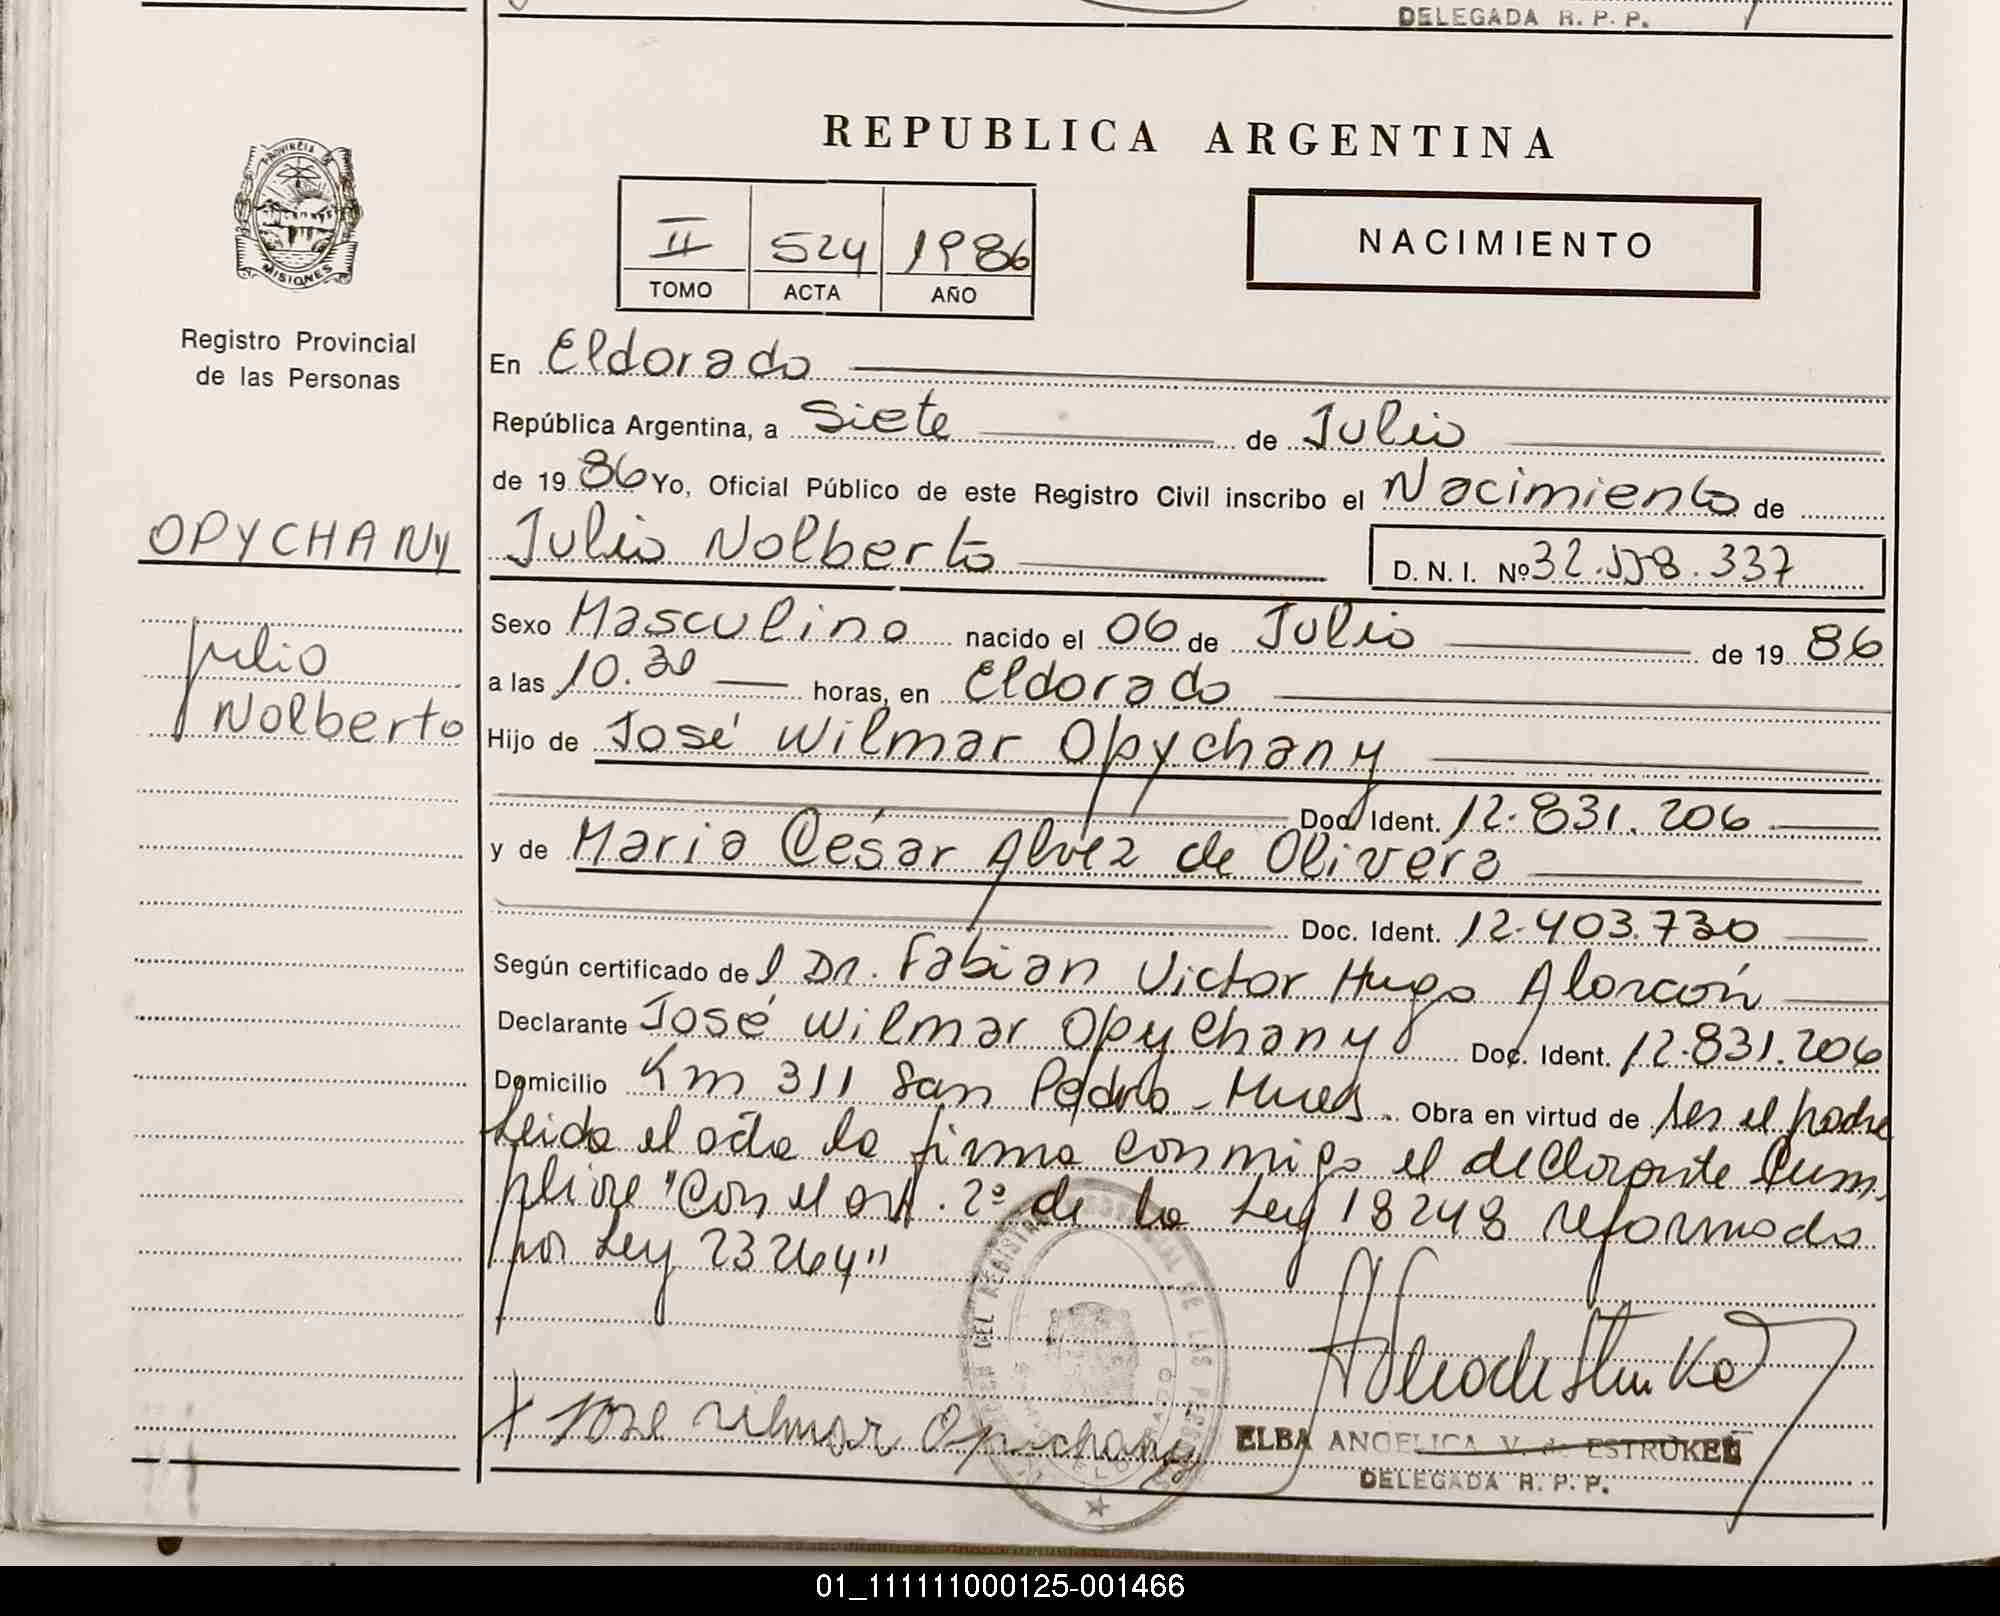 DELEGADA R. P. P.
REPUBLICA ARGENTINA
PROVINCIA DE
MISIONES
Registro Provincial
de las Personas
II 524 1986
TOMO ACTA AÑO
NACIMIENTO
En Eldorado
República Argentina, a Siete de Julio
de 1986 Yo, Oficial Público de este Registro Civil inscribo el Nacimiento de
OPYCHANY
Julio Nolberto D. N. I. Nº 32.558.337
Sexo Masculino nacido el 06 de Julio de 1986
Julio
Nolberto
a las 10.30 horas, en Eldorado
Hijo de José Wilmar Opychany
Doc. Ident. 12.831.206
y de Maria César Alvez de Olivera
Doc. Ident. 12.403.730
Según certificado del Dr. Fabian Victor Hugo Alarcón
Declarante José Wilmar Opychany Doc. Ident. 12.831.206
Domicilio Km 311 San Pedro - Mnes. Obra en virtud de ser el padre
Leida el acta la firma conmigo el declarante Cum-
plire "Con el art. 2º de la Ley 18248 reformada
por Ley 23264"
X Jose Wilmar Opichany
ELBA ANGELICA V. de ESTRUKEL
DELEGADA R. P. P.
01_111111000125-001466